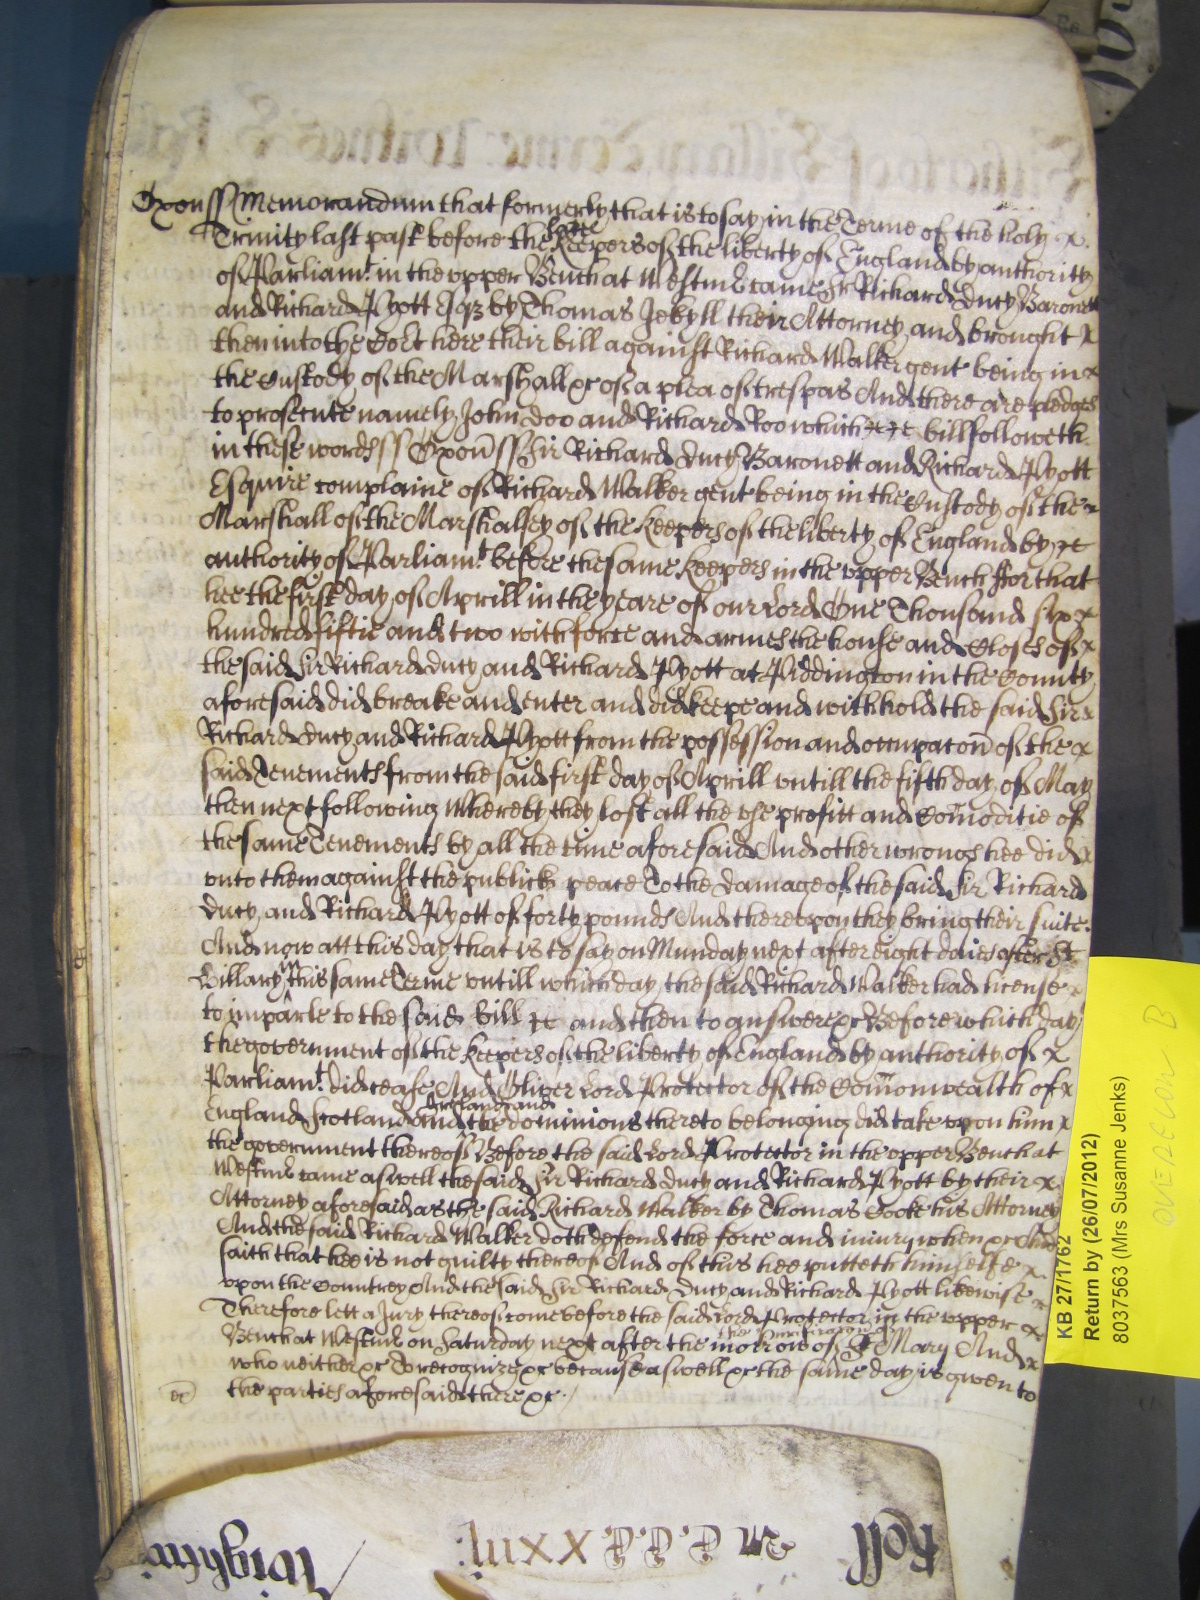 Oxon ss Memorandum that formerly that is to say in the Terme of the holy x
Trinity last past before the late Keepers of the liberty of England by authority
of Parliamt. in the upper Bench at Westmr came Sr Richard Ducy Baronett
and Richard Pyott Esqr by Thomas Jekyll their Attorney and brought x
then into the Cort here their bill against Richard Walker gent being in x
the Custody of the Marshall &c of a plea of trespas And there are pledges
to prosecute namely John Doo and Richard Roo which bill followeth
in these words ss Oxon ss Sir Richard Ducy Baronett and Richard Pyott
Esquire complaine of Richard Walker gent being in the Custody of the x
Marshall of the Marshalsey of the Keepers of the liberty of England by
authority of Parliamt. before the same keepers in the upper Bench ffor that
hee the first day of Aprill in the yeare of our Lord One Thousand six x
hundred fiftie and two with force and armes the house and Closes of x
the said Sir Richard Ducy and Richard Pyott at Piddington in the County
aforesaid did breake and enter and did keepe and withhold the said Sir x
Richard Ducy and Richard Pyott from the possession and occupacon of the x
said Tenements from the said first day of Aprill untill the fifth day of May
then next following Whereby they lost all the use profitt and Comoditie of
the same Tenements by all the time aforesaid And other wrongs hee did x
unto them against the publick peace To the damage of the said Sir Richard
Ducy and Richard Pyott of forty pounds And thereupon they bring their suite.
And now att this day that is to say on Munday next after eight daies after St
Hillary in this same Terme untill which day the said Richard Walker had license x
to imparle to the said bill and then to answere &c Before which day
the government of the Keepers of the liberty of England by authority of x
Parliamt. did cease And Oliver Lord Protector of the Comonwealth of x
England Scotland and Ireland and the dominions thereto belonging did take upon him x
the government thereof Before the said Lord Protector in the upper Bench at
Westmr came aswell the said Sir Richard Ducy and Richard Pyott by their x
Attorney aforesaid as the said Richard Walker by Thomas Cooke his Attorney
And the said Richard Walker doth defend the force and iniury when &c And
saith that hee is not guilty thereof And of this hee putteth himselfe x
upon the Countrey And the said Sir Richard Ducy and Richard Pyott likewise x
Therefore lett a Jury thereof come before the said Lord Protector in the upper x
Bench at Westmr on Saturday next after the morrow of the Purificacon of St Mary And x
who neither &c To recognize &c because aswell &c the same day is given to
the parties aforesaid there &c
KB 27/1762
Return by (26/07/2012)
8037563 (Mrs Susanne Jenks)
Roll
Wightwick